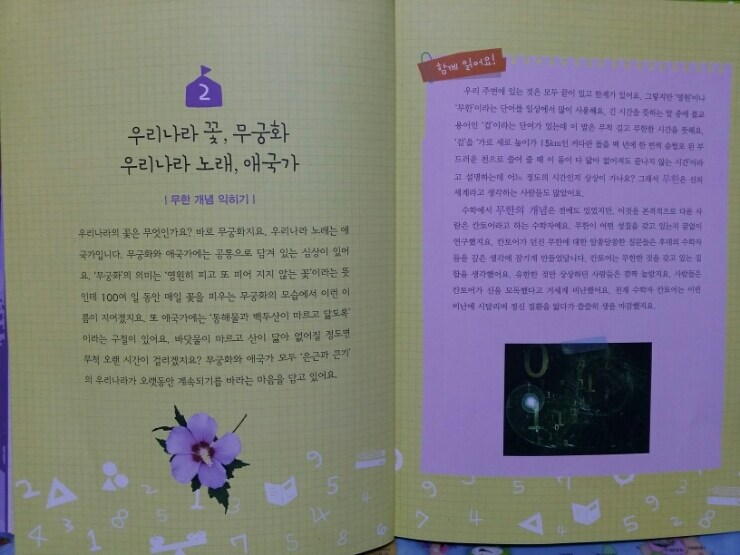 2
우리나라 꽃, 무궁화
우리나라 노래, 애국가
| 무한 개념 익히기 |
우리나라의 꽃은 무엇인가요? 바로 무궁화지요. 우리나라 노래는 애
국가입니다. 무궁화와 애국가에는 공통으로 담겨 있는 심상이 있어
요. '무궁화'의 의미는 '영원히 피고 또 피어 지지 않는 꽃'이라는 뜻
인데 100여 일 동안 매일 꽃을 피우는 무궁화의 모습에서 이런 이
름이 지어졌지요. 또 애국가에는 '동해물과 백두산이 마르고 닳도록'
이라는 구절이 있어요. 바닷물이 마르고 산이 닳아 없어질 정도면
무척 오랜 시간이 걸리겠지요? 무궁화와 애국가 모두 '은근과 끈기'
의 우리나라가 오랫동안 계속되기를 바라는 마음을 담고 있어요.
함께 읽어요!
우리 주변에 있는 것은 모두 끝이 있고 한계가 있어요. 그렇지만 '영원'이나
'무한'이라는 단어를 일상에서 많이 사용해요. 긴 시간을 뜻하는 말 중에 불교
용어인 '겁'이라는 단어가 있는데 이 말은 무척 길고 무한한 시간을 뜻해요.
'겁'을 '가로 세로 높이가 15km인 커다란 돌을 백 년에 한 번씩 승렬로 된 부
드러운 천으로 쓸어 줄 때 이 돌이 다 닳아 없어져도 끝나지 않는 시간'이라
고 설명하는데 어느 정도의 시간인지 상상이 가나요? 그래서 무한은 신의
세계라고 생각하는 사람들도 많았어요.
수학에서 무한의 개념은 전에도 있었지만, 이것을 본격적으로 다룬 사
람은 칸토어라고 하는 수학자예요. 무한이 어떤 성질을 갖고 있는지 끊임없이
연구했지요. 칸토어가 던진 무한에 대한 알쏭달쏭한 질문들은 후대의 수학자
들을 깊은 생각에 잠기게 만들었답니다. 칸토어는 무한한 것을 갖고 있는 집
합을 생각했어요. 유한한 것만 상상하던 사람들은 깜짝 놀랐지요. 사람들은
칸토어가 신을 모독했다고 거세게 비난했어요. 천재 수학자 칸토어는 이런
비난에 시달리며 정신 질환을 앓다가 쓸쓸히 생을 마감했지요.